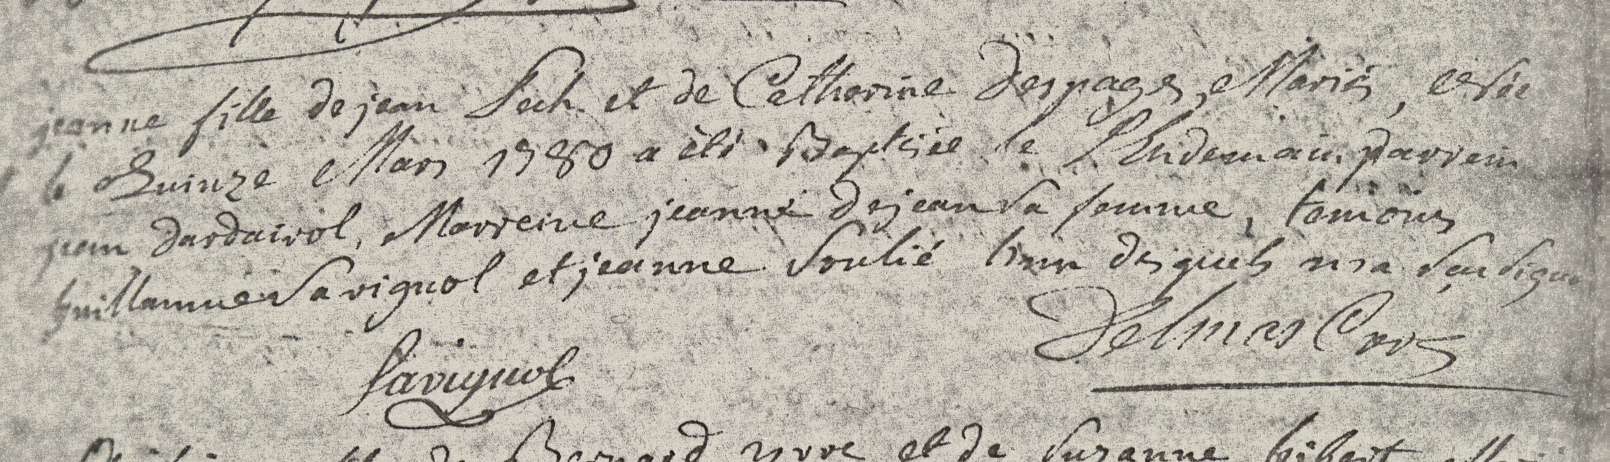 jeanne fille de jean Pech et de Catherine Despages, Mariés, et née
le Quinze Mars 1780 a été Baptisée le Lendemain parrein
jean dardairol, Marreine jeanne dejean sa femme, temoins
guillaume Savignol et jeanne Soulié l'un desquels n'a Seu signer
Delmas Cros
Savignol
de Bernard yvre et de Suzanne